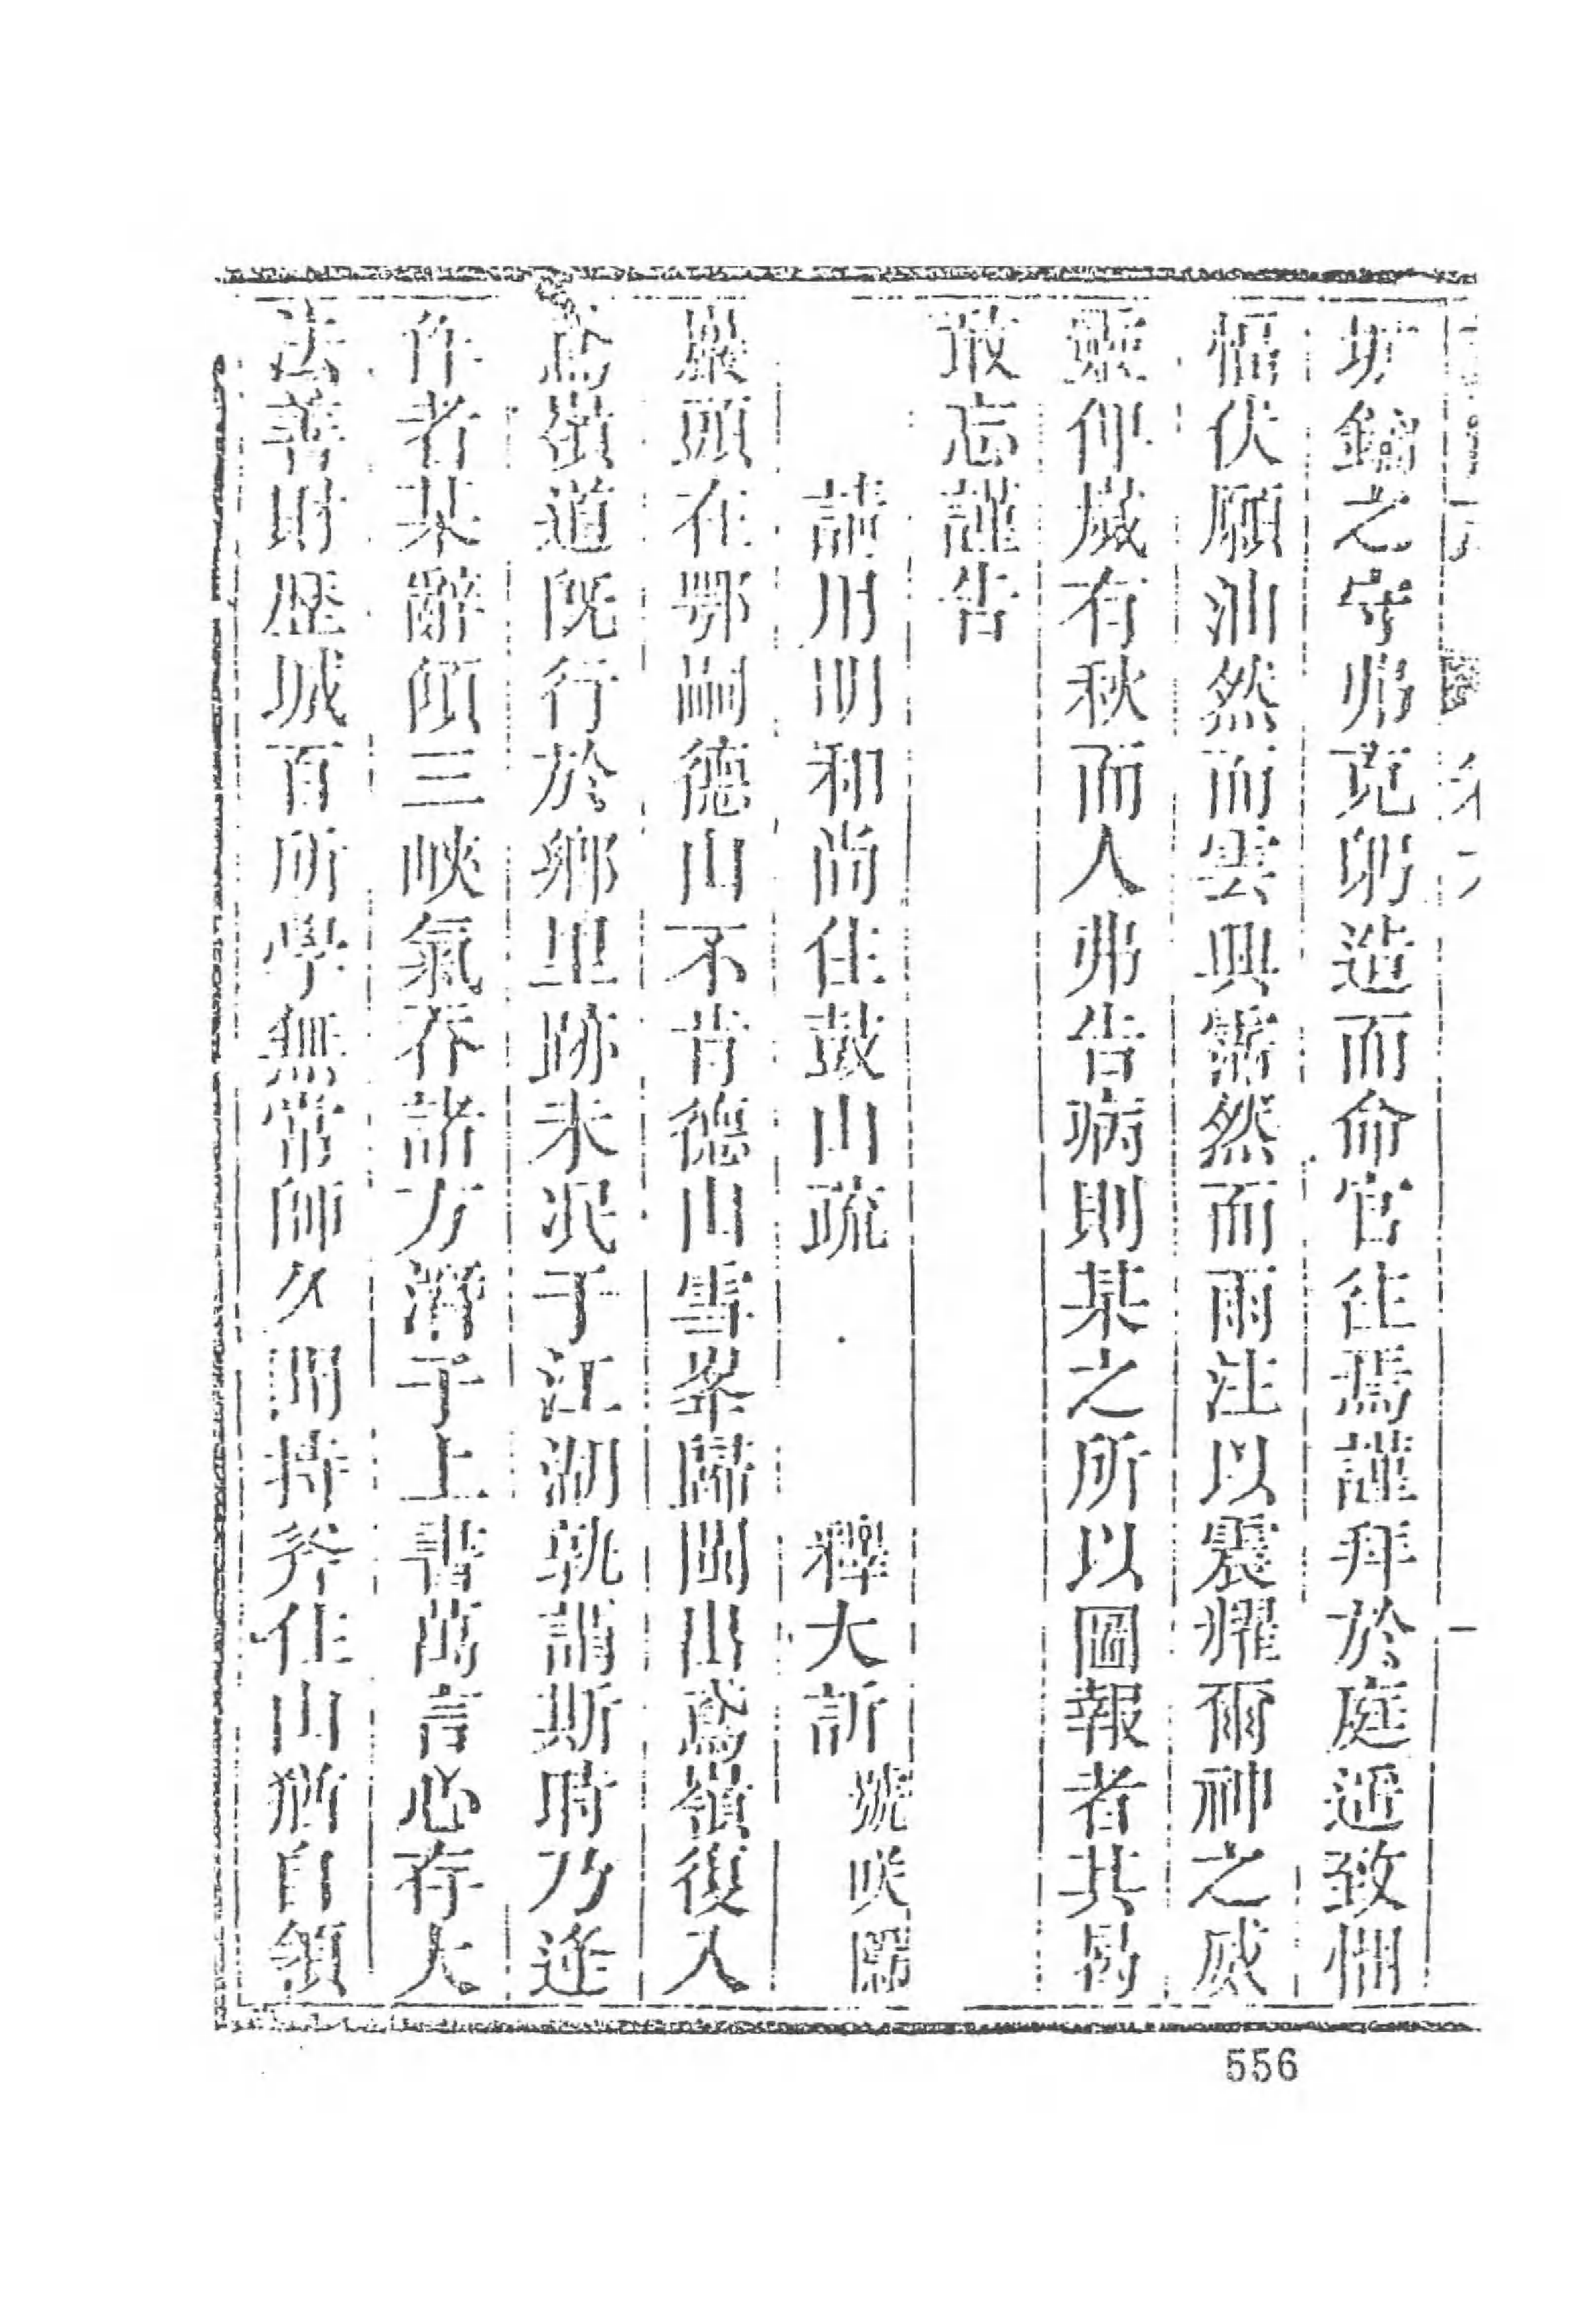 圹鑰之守弗克躬造而命官往焉謹拜於庭遥致悃
愊伏願油然而雲興霈然而雨注以震耀爾神之威
靈仰歲有秋而人弗告病則某之所以圖報者其曷
敢忘謹告
請川明和尚住鼓山疏 釋大訢號咲隱
巖頭在鄂嗣德山不肯德山雪峯歸閩出鳶嶺復入
鳶嶺道既行於鄉里跡未泯于江湖孰謂斯時乃逢
作者某辭傾三峽氣吞諸方濟子上書萬言心存大
法善財歷城百所學無常師久聞持斧住山猶自領
556